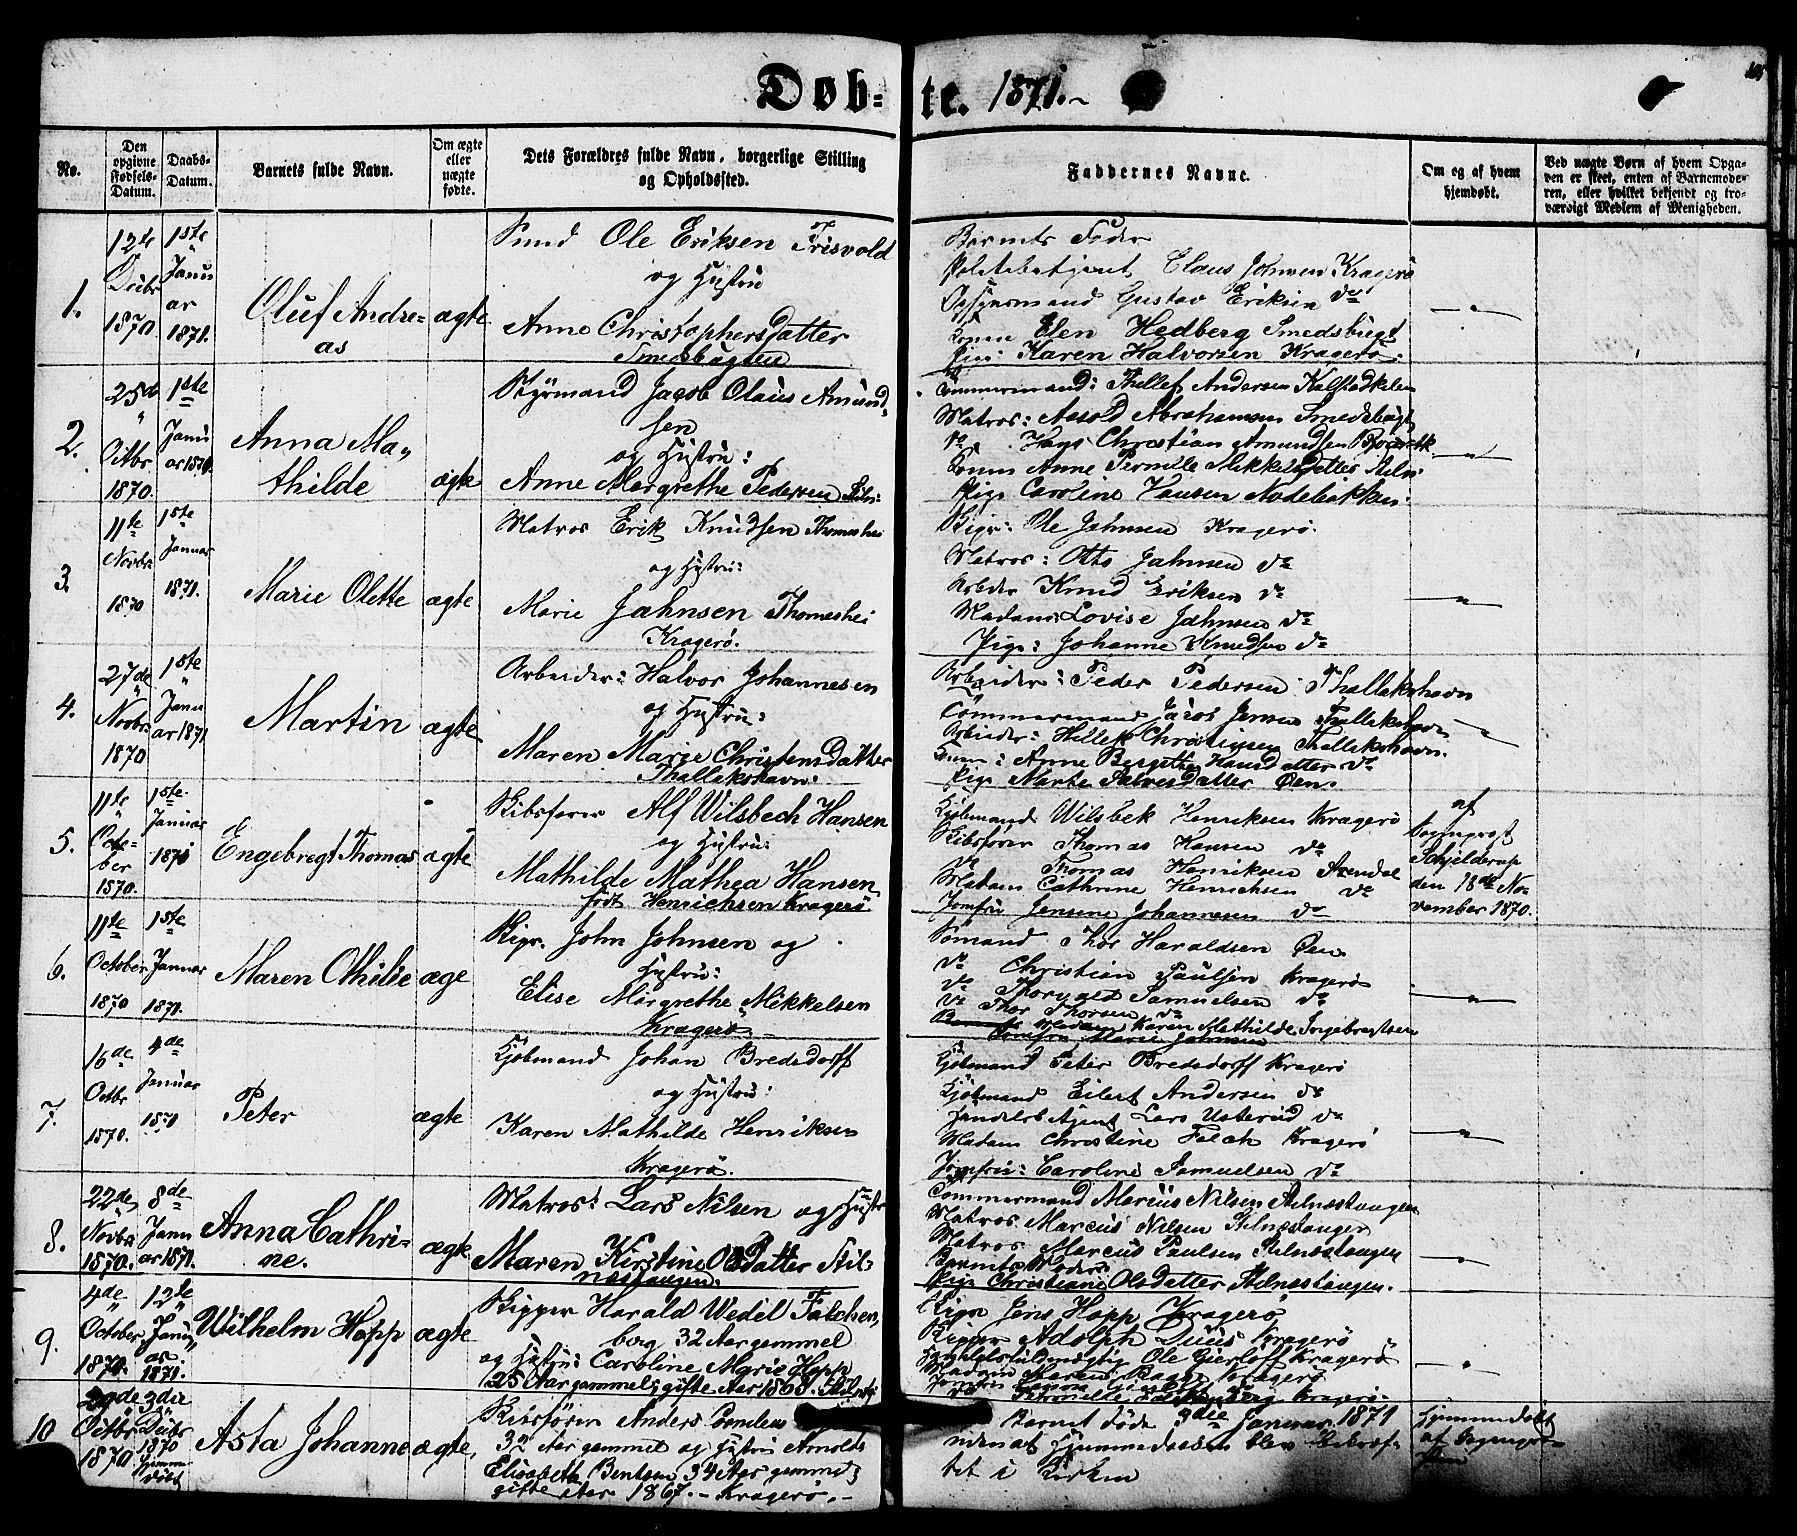 Døb-
No.
Den opgivne Fødsels-Datum.
Daabs-Datum.
Barnets fulde Navn.
Om ægte eller uægte fødte.
Dets Forældres fulde Navn, borgerlige Stilling og Opholdssted.
1.
12te Decbr 1870.
1ste Januar 1871.
Oluf Andreas
ægte
Ole Eriksen Frisvold
og Hustru
Anne Christophersdatter
2.
25de Octbr. 1870.
1ste
Anna Mathilde
ægte
Styrmand Jacob Olaus Amundsen
og Hustru:
Anne Margrethe Pedersen
3.
11te Novbr. 1870
1ste Januar 1871.
Marie Olette
ægte
Matros Erik Knudsen Thomeshei
og Hustru:
Marie Jahnsen Thomeshei
Kragerø.
4.
27de Novbr. 1870
1ste Januar 1871
Martin
ægte
Arbeider: Halvor Johannesen
og Hustru:
Maren Marie Christensdatter
Thallakshavn:
5.
11te October 1870.
1ste Januar 1871
Engebregt Thomas
ægte
Skibsfører Alf Wilsbech Hansen
og Hustru:
Mathilde Mathea Hansen
født Henrichsen Kragerø
6.
11te October 1870
1ste Januar 1871.
Maren Othilie
ægte
Skipr. John Johnsen og
Hustru:
Elise Margrethe Mikkelsen
Kragerø
7.
16de Octbr 1870.
4de Januar 1871
Peter
ægte
Kjøbmand Johan Bredsdorff
og Hustru:
Karen Mathilde Henriksen
Kragerø.
8.
22de Novbr 1870.
8de Januar 1871.
Anna Cathrine.
ægte
Matros: Lars Nilsen og Hustru
Maren Kirstine Olsdatter Stilnæstangen.
9.
4de October 1870.
12te Januar 1871.
Wilhelm Hopp
ægte
Skipper Harald Wedel Falchenberg 32 Aar gammel
og Hustru: Caroline Marie Hopp
25 Aar gammel; gifte Aar 1868.
10
Octbr 1870
3die Decbr 1870
Asta Johanne
ægte,
Skibsfører Anders
32 Aar gammel og Hustru Arnolde
Elisabeth Bentsen 34 Aar gammel;
gifte Aar 1867. - Kragerø. -
te. 1871.
Faddernes Navne.
Om og af hvem hjemdøbt.
Ved uægte Børn af hvem Opgaven er skeet, enten af Barnemoderen, eller hvilket bekjendt og troværdigt Medlem af Menigheden.
Barnets Fader
Politibetjent Claus Johnsen Kragerø
Opsynsmand Gustav Eriksen do
Konen Elen Hedberg Smedsbugt
Pige: Karen Halvorsen Kragerø.
Tømmermand: Thellef Andersen
Matros: Aasold Abrahamsen
do Hans Christian Amundsen
Konen Anne Pernille Mikkelsdatter
Pige Caroline Hansen
Skipr: Ole Jahnsen Kragerø.
Matros: Otto Jahnsen do
Arbeider Knud Eriksen do
Madam: Lovise Jahnsen do
Pige: Johanne Knudsen do
Arbeider: Peder Pedersen Thallakshavn
Tømmermand Jacob Jensen Thallakshavn
Arbeider: Christensen Thallakshavn.
Konen: Anne Bergithe Hansdatter do
Pige Marthe Salvesdatter Øen.
Kjøbmand Wilsbek Henriksen Kragerø
Skibsfører Thomas Hansen do
do Thomas Henriksen Arendal
Madam Cathrine Henrichsen do
Jomfru Jensine Johannesen do
af Sogneprest Schjelderup den 18de November 1870.
Sømand Thor Haraldsen Øen
do Christian Paulsen Kragerø
do Samuelsen do
do Thor Thorsen do
Madam Karen Mathilde Ingebregtsen
Jomfru Marie Jahnsen
Kjøbmand Peter Bredsdorff Kragerø
Kjøbmand Eilert Andersen do
Handelsbetjent Lars do
Madam Christine Falch Kragerø
Jomfru: Caroline Samuelsen do
Tømmermand Marius Nilsen Stilnæstangen
Matros Marcus Nilsen Stilnæstangen
Matros Marcus Paulsen Stilnæstangen
Barnets Moder
Pige Christiane Olsdatter Stilnæstangen.
Skipr Jens Hopp Kragerø
Skipper Adolph Duus Kragerø
Ole Gierløff Kragerø
Kragerø
Barnet døde 3die Januar 1871
uden at Hjemmedaaben blev bekræftet i Kirken
Hjemmedøbt af